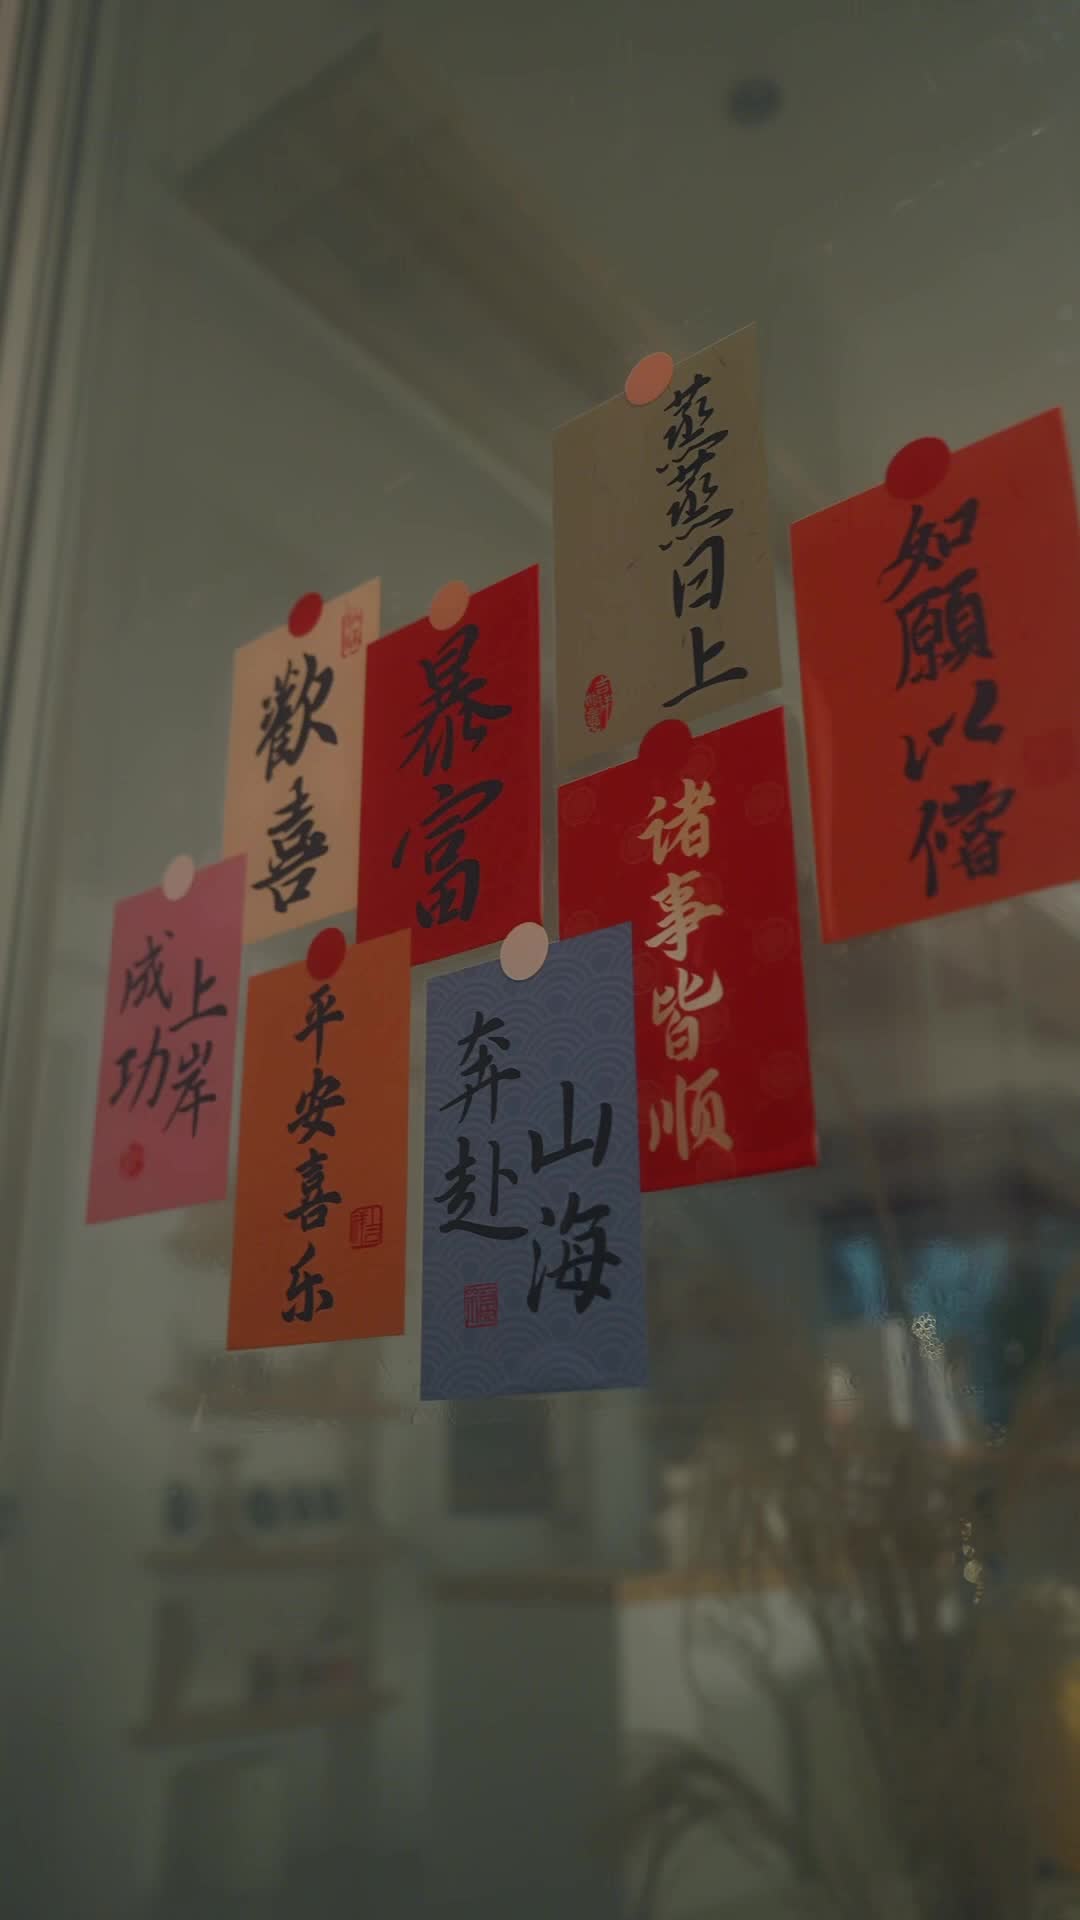 蒸蒸日上
如願以償
歡喜
暴富
诸事皆顺
成功
上岸
平安喜乐
奔赴
山海
福